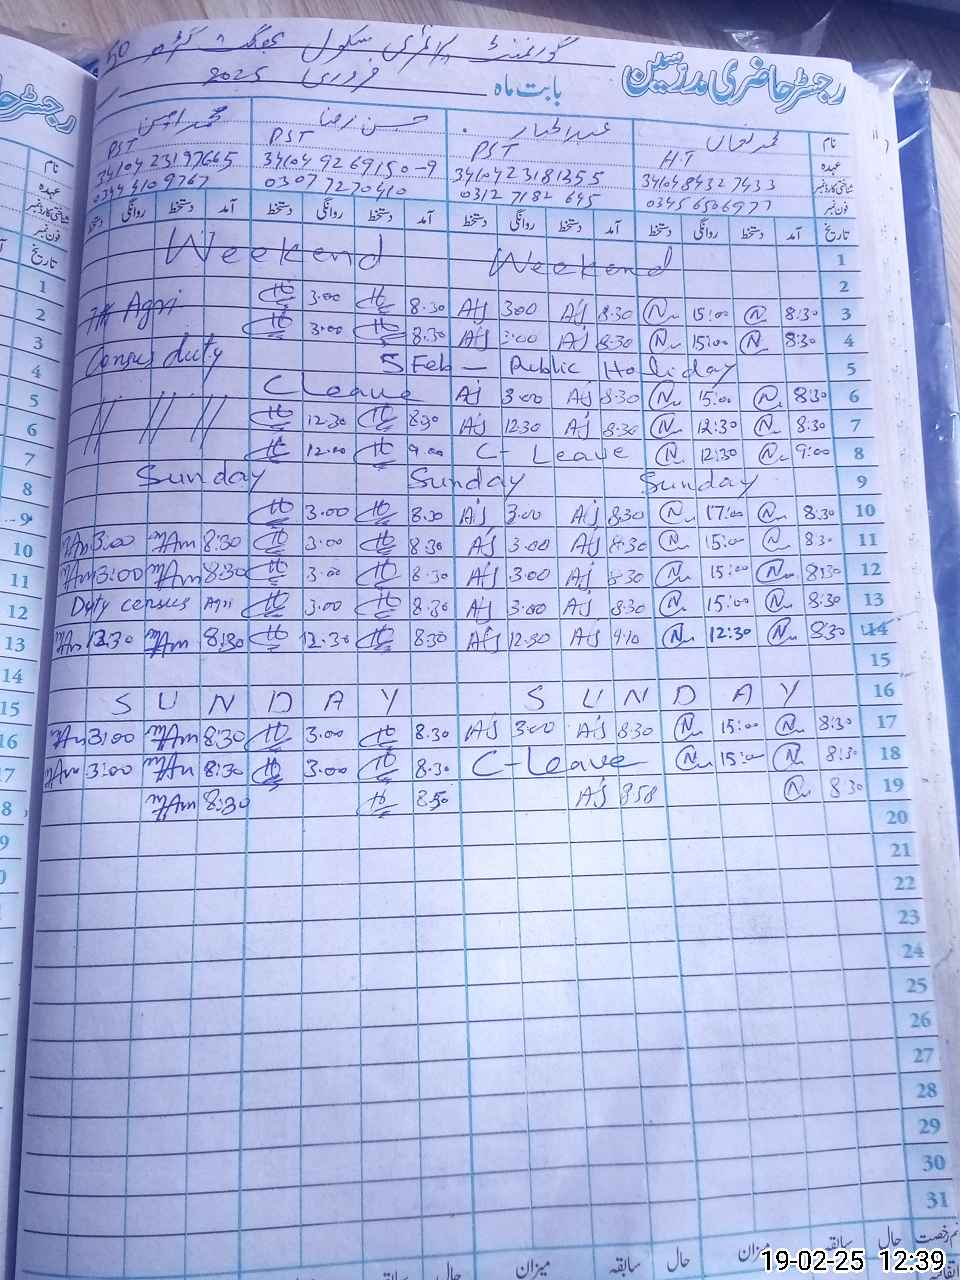 گورنمنٹ پرائمری سکول
رجسٹر حاضری مدرسین
بابت ماہ فروری 2025
نام محمد نعمان عبدالجبار حسن رضا محمد امین
عہدہ H.T PST PST PST
شناختی کارڈ نمبر 34104 8432 7433 34104 23181255 34104 9269150-9 34104 23197665
فون نمبر 0345 6506977 0312 7182 645 0307 7270410 0344 4109767
تاریخ آمد دستخط روانگی دستخط آمد دستخط روانگی دستخط آمد دستخط روانگی دستخط آمد دستخط روانگی دستخط
Weekend Weekend 1
2
Agri 3.00 8.30 AJ 3.00 AJ 8.30 N 15:00 N 8:30 3
3.00 8.30 AJ 3:00 AJ 8:30 N 15:00 N 8:30 4
Census duty 5 Feb — Public Holiday 5
C Leave AJ 3.00 AJ 8:30 N 15:00 N 8:30 6
12.30 8.30 AJ 12.30 AJ 8:30 N 12:30 N 8:30 7
12.00 9.00 C- Leave N 12:30 N 9:00 8
Sunday Sunday Sunday 9
3.00 8.30 AJ 3.00 AJ 8:30 N 17:00 N 8:30 10
MAm 3:00 MAm 8:30 3.00 8.30 AJ 3.00 AJ 8:30 N 15:00 N 8:30 11
MAm 3:00 MAm 8:30 3.00 8.30 AJ 3:00 AJ 8:30 N 15:00 N 8:30 12
Duty census Agri 3.00 8.30 AJ 3:00 AJ 8:30 N 15:00 N 8:30 13
MAm 12.30 MAm 8:30 12.30 8.30 AJ 12.30 AJ 9:10 N 12:30 N 8:30 14
15
S U N D A Y S U N D A Y 16
MAm 3:00 MAm 8:30 3.00 8.30 AJ 3:00 AJ 8:30 N 15:00 N 8:30 17
MAm 3:00 MAm 8:30 3.00 8.30 C-Leave N 15:00 N 8:30 18
MAm 8:30 8:50 AJ 8:58 N 8:30 19
20
21
22
23
24
25
26
27
28
29
30
31
رخصت حال سابقہ میزان حال سابقہ میزان حال سابقہ
19-02-25 12:39